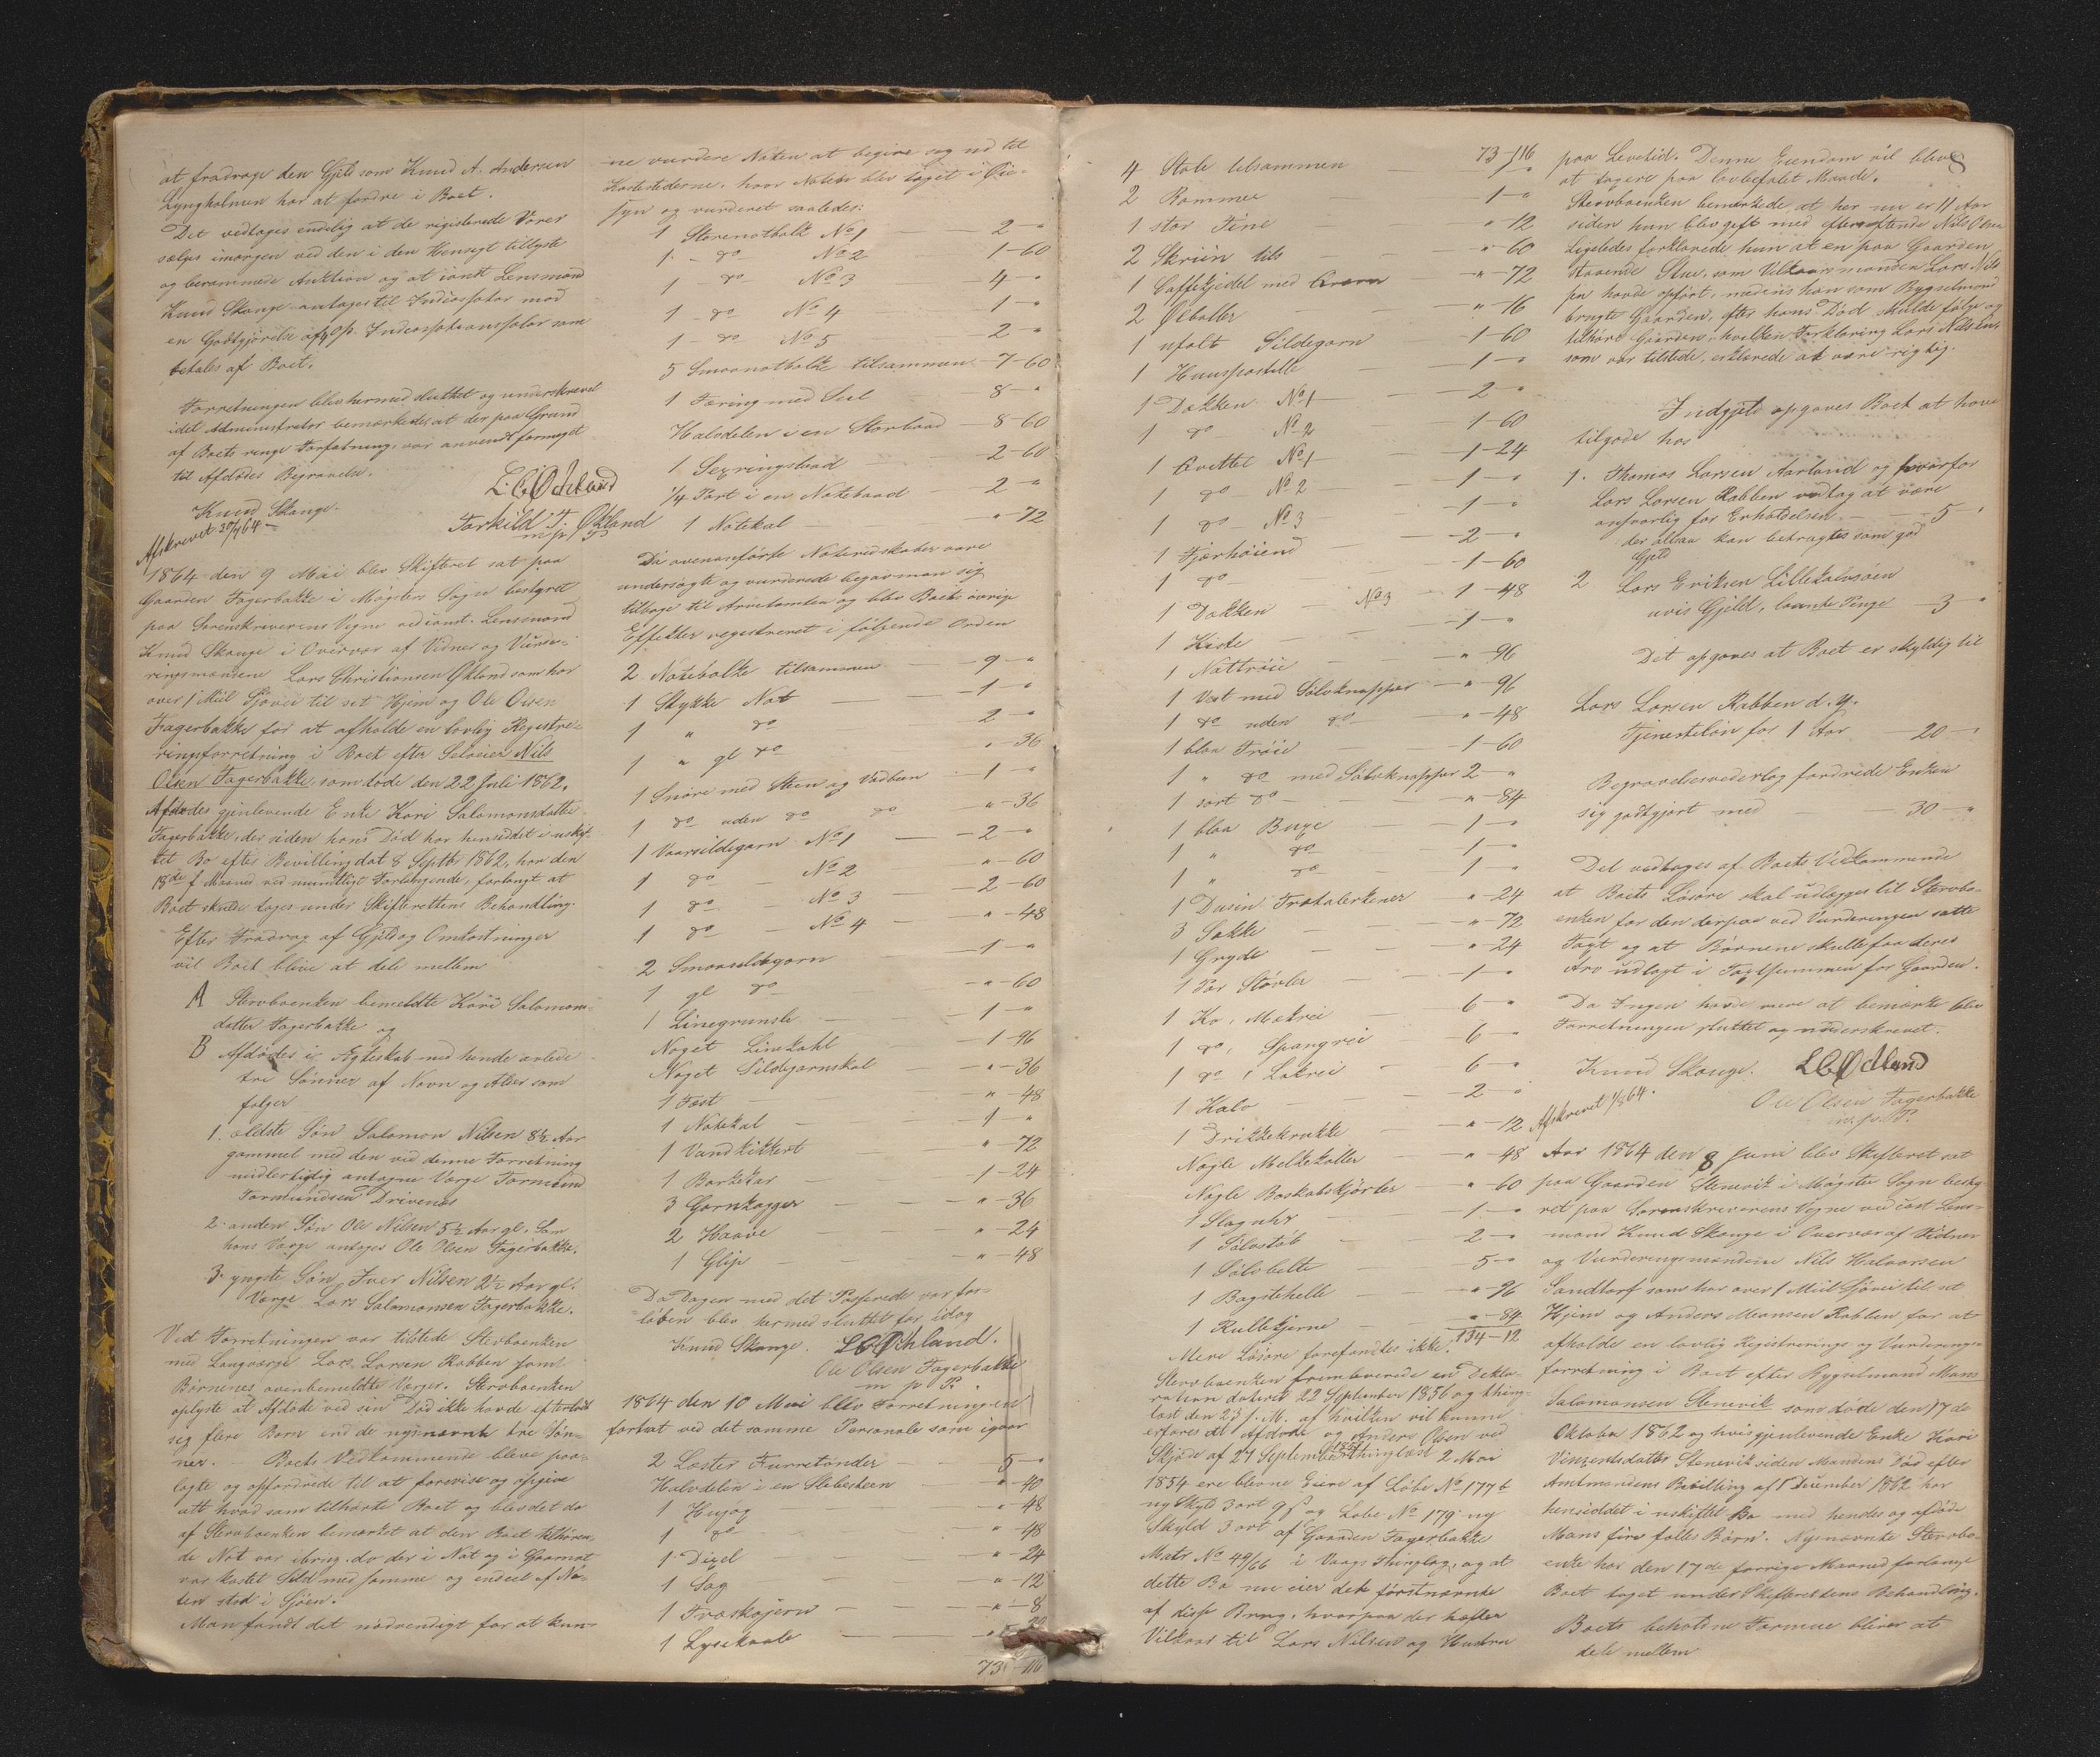 at fradrage den Gjeld som Knud A. Andersen
Lyngholmen har at fordre i Boet.
Det vedtoges endelig at de registerede Varer
sælges imorgen ved den i den Hensigt tillyste
og berammede Auktion og at const. Lensmand
Knud Skange antages til Incassator mod
en Godtgjørelse af 4 p. Incassationssalær som
betales af Boet.
Forretningen blev hermed sluttet og underskrevet
idet Administrator bemærkede at der paa Grund
af Boets ringe Forfatning, var anvendt formeget
til Afdødes Begravelse.
L C Økland
Knud Skange.
Torkild T. Økland
m p P
Afskrevet 30/7 64
1864 den 9 Mai blev Skifteret sat paa
Gaarden Fagerbakke i Møgster Sogn bestyret
paa Sorenskriverens Vegne ved const. Lensmand
Knud Skange i Overvær af Vidner og Vurde-
ringsmændene Lars Christiansen Økland som har
over 1 Miil Sjøvei til sit Hjem og Ole Olsen
Fagerbakke for at afholde en lovlig Registre-
ringsforretning i Boet efter Selveier Nils
Olsen Fagerbakke, som døde den 22 Juli 1862.
Afdødes gjenlevende Enke Kari Salomonsdatter
Fagerbakke, der siden hans Død har hensiddet i uskif-
tet Bo efter Bevilling dat 8 Septbr 1862, har den
18de f. Maaned ved mundtligt Forlangende, forlangt at
Boet skulde tages under Skifterettens Behandling.
Efter Fradrag af Gjeld og Omkostninger
vil Boet blive at dele mellem
A Stervboenken bemeldte Kari Salomons-
datter Fagerbakke og
B Afdødes i Ægteskab med hende avlede
tre Sønner af Navn og Alder som
følger
1. ældste Søn Salomon Nilsen 8½ Aar
gammel med den ved denne Forretning
midlertidig antagne Værge Tormund
Tormundsen Drivenes
2. anden Søn Ole Nilsen 5½ Aar gl. Som
hans Værge antages Ole Olsen Fagerbakke.
3. yngste Søn, Iver Nilsen 2½ Aar gl.
Værge Lars Salamonsen Fagerbakke.
Ved Forretningen var tilstede Stervboenken
med Laugværge Lars Larsen Rabben samt
Børnenes ovenbemeldte Værger. Stervboenken
oplyste at Afdøde ved sin Død ikke havde efterladt
sig flere Børn end de nysnævnte tre Søn-
ner. - Boets Vedkommende bleve paa-
lagte og opfordrede til at forevise og opgive
alt hvad som tilhørte Boet og blev det da
af Stervboenken bemærket at den Boet tilhøren-
de Not var ibrug, da der i Not og i Garnot
var kastet Sild med samme og endeel af No-
ten stod i Sjøen.
Man fandt det nødvendigt for at kun-
ne vurdere Noten at begive sig ud til
Kastestederne, hvor Noten blev taget i Øie-
syn og vurderet saaledes:
1 Storenotbolk No 1 2 - "
1 - do No 2 1 - 60
1 - do No 3 4 - "
1 - do No 4 1 - "
1 - do No 5 2 - "
5 Smaanotbolke tilsammen - 7 - 60
1 Færing med Seil 8 - "
Halvdelen i en Storbaad 8 - 60
1 Sexringsbaad 2 - 60
¼ Part i en Notebaad 2 - "
1 Notekal " - 72
Da ovenanførte Noteredskaber vare
undersøgte og vurderede begav man sig
tilbage til Arvetomten og blev Boets øvrige
Effekter registreret i følgende Orden
2 Notebolke tilsammen 9 - "
1 Stykke Not 1 - "
1 " do 2 - "
1 " gl do " - 36
1 Snøre med Steen og Vadbeen 1 - "
1 do uden do do " - 36
1 Vaarsildegarn No 1 2 - "
1 do - No 2 " - 60
1 do - No 3 2 - 60
1 do - No 4 " - 48
2 Smaasildegarn 1 - "
1 gl do " - 60
1 Linegrunsle 1 - "
Noget Linekahl 1 - 96
Noget Sildgarnskal " - 36
1 Fæst " - 48
1 Notekal 1 - "
1 Vandkikkert " - 72
1 Barkekar 1 - 24
3 Garnkagger " - 36
2 Haave " - 24
1 Glip " - 48
Da Dagen med det Passerede var for-
løben blev hermed sluttet for idag
Knud Skange. L C Økland.
Ole Olsen Fagerbakke
m p P.
1864 den 10 Mai blev Forretningen
fortsat ved det samme Personale som igaar
2 Læster Furretønder 5 - "
Halvdelen i en Slibesteen " - 40
1 Huøg " - 48
1 do " - 48
1 Dixel " - 24
1 Sag " - 12
1 Træskojern " - 8
1 Lysekaale " - 20
73 - 116
73 - 116
4 Stole tilsammen
2 Rammer 1 - "
1 stor Tine " - 12
2 Skriin tils " - 60
1 Caffekjedel med Qværn " - 72
2 Ølboller " - 16
1 ufalt Sildegarn 1 - 60
1 Huuspostille 1 - "
1 Dækken No 1 2 - "
1 do No 2 1 - 60
1 Qvittel No 1 1 - 24
1 do No 2 1 - "
1 do - No 3 1 - "
1 Fjærhøiend 2 - "
1 do 1 - 60
1 Dækken No 3 1 - 48
1 Kiste 1 - "
1 Nattrøie " - 96
1 Vest med Sølvknapper " - 96
1 do uden do " - 48
1 blaa Trøie 1 - 60
1 " do med Sølvknapper 2 - "
1 sort do " - 84
1 blaa Buxe 1 - "
1 " do 1 - "
1 " do 1 - "
1 Dusin Trætalerkener " - 24
3 Sække " - 72
1 Gryde " - 24
1 Par Støvler 1 - "
1 Ko, Mækrei 6 - "
1 do, Spangrei 6 - "
1 do, Løkrei 6 - "
1 Kalv 2 - "
1 Drikkekrukke " - 12
Nogle Melkekoller " - 48
Nogle Boskabskjørler " - 60
1 Slaguhr 1 - "
1 Sølvstøb 2 - "
1 Sølvbelte 5 - "
1 Bagstehelle " - 96
1 Rullekjerne " - 84
134 - 12
Mere Løsøre forefandtes ikke.
Stervboenken fremleverede en Dekla-
ration dateret 22 September 1856 og thing-
læst den 23 s. M. af hvilken vil kunne
erfares at Afdøde og Anders Olsen ved
Skjøde af 27 September 1853 thinglæst 2 Mai
1854 ere blevne Eiere af Løbe No 177 b
ny Skyld 3 ort 9 s og Løbe No 179 ny
Skyld 3 ort af Gaarden Fagerbakke
Matr No 49/66 i Vaags Thinglag, og at
dette Bo nu eier det førstnævnte
af disse Brug, hvorpaa der hæfter
Vilkaar til Lars Nilsen og Hustru
8
paa Levetid. Denne Eiendom vil blive
at taxere paa lovbefalet Maade.
Stervboenken bemærkede at her nu er 11 Aar
siden hun blev gift med efterafdøde Nils Olsen
Ligeledes forklarede hun at en paa Gaarden
staaende Stue, som Vilkaarsmanden Lars Nils-
sen havde opført, medens han som Bygselmand
brugte Gaarden, efter hans Død skulde følge og
tilhøre Gaarden, hvilken Forklaring Lars Nilsen,
som var tilstede, erklærede at være rigtig.
Indgjeld opgaves Boet at have
tilgode hos
1. Thomas Larsen Aarland og hvorfor
Lars Larsen Rabben vedtog at være
ansvarlig for Erholdelsen 5 - "
der altsaa kan betragtes som god
Gjeld
2 Lars Eriksen Lillekalvsøen
uvis Gjeld, laante Penge 3 - "
Det opgaves at Boet er skyldig til
Lars Larsen Rabben d. y.
Tjenesteløn for 1 Aar 20 - "
Begravelsesvederlag fordrede Enken
sig godtgjort med 30 - "
Det vedtoges af Boets Vedkommende
at Boets Løsøre skal udlægges til Stervbo-
enken for den derpaa ved Vurderingen satte
Taxt og at Børnene skulle faa deres
Arv udlagt i Taxtsummen for Gaarden.
Da Ingen havde mere at bemærke blev
Forretningen sluttet og underskrevet.
Knud Skange. L C Økland
Ole Olsen Fagerbakke
m. p. P.
Afskrevet 1/8 64.
Aar 1864 den 8 Juni blev Skifteret sat
paa Gaarden Stenevik i Møgster Sogn besty-
ret paa Sorenskriverens Vegne ved cost Lens-
mand Knud Skange i Overvær af Vidner
og Vurderingsmændene Nils Halvorsen
Sandtorf som har over 1 Miil Sjøvei til sit
Hjem og Anders Monsen Rabben for at
afholde en lovlig Registrerings og Vurderings-
forretning i Boet efter Bygselmand Mons
Salamonsen Stenevik som døde den 17de
Oktober 1862 og hvis gjenlevende Enke Kari
Vinzentsdatter Stenevik siden Mandens Død efter
Amtmandens Bevilling af 1 December 1862 har
hensiddet i uskiftet Bo med hendes og afdøde
Mons fire fælles Børn. Nysnævnte Stervbo-
enke har den 17de forrige Maaned forlangt
Boet taget under Skifterettens Behandling.
Boets beholdne Formue bliver at
dele mellem